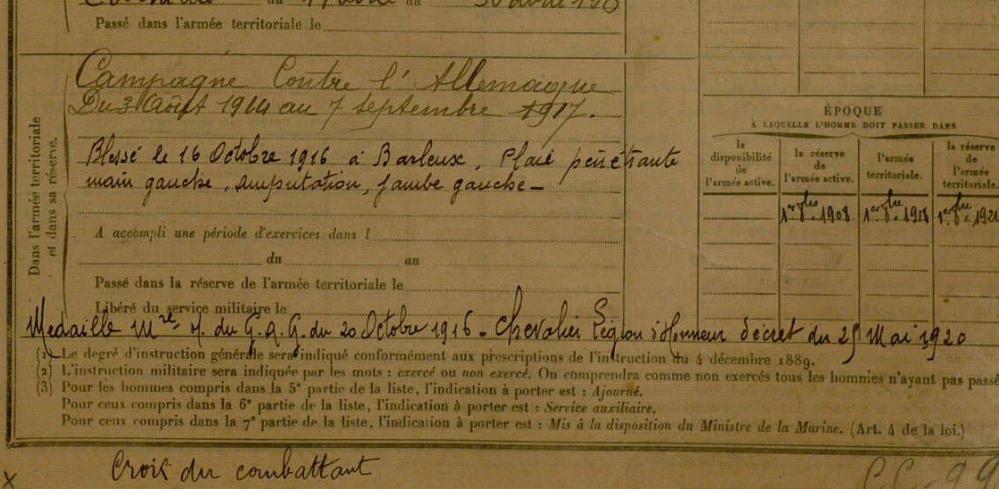 du 11 avril au 30 avril 19
Passé dans l'armée territoriale le
Dans l'armée territoriale et dans sa réserve.
Campagne Contre l'Allemagne
Du 3 Août 1914 au 7 septembre 1917.
Blessé le 16 Octobre 1916 à Barleux, Plaie pénétrante
main gauche, amputation, jambe gauche –
A accompli une période d'exercices dans l
du au
Passé dans la réserve de l'armée territoriale le
Libéré du service militaire le
ÉPOQUE
À LAQUELLE L'HOMME DOIT PASSER DANS
la disponibilité de l'armée active.
la réserve de l'armée active.
l'armée territoriale.
la réserve de l'armée territoriale.
1er 8bre 1908 1er 8bre 1918 1er 8bre 192
Médaille Mre M. du G.Q.G. du 20 Octobre 1916 – Chevalier Légion d'Honneur décret du 25 Mai 1920
(1) Le degré d'instruction générale sera indiqué conformément aux prescriptions de l'instruction du 4 décembre 1889.
(2) L'instruction militaire sera indiquée par les mots : exercé ou non exercé. On comprendra comme non exercés tous les hommes n'ayant pas passé
(3) Pour les hommes compris dans la 5e partie de la liste, l'indication à porter est : Ajourné.
Pour ceux compris dans la 6e partie de la liste, l'indication à porter est : Service auxiliaire.
Pour ceux compris dans la 7e partie de la liste, l'indication à porter est : Mis à la disposition du Ministre de la Marine. (Art. 4 de la loi.)
x Croix du combattant